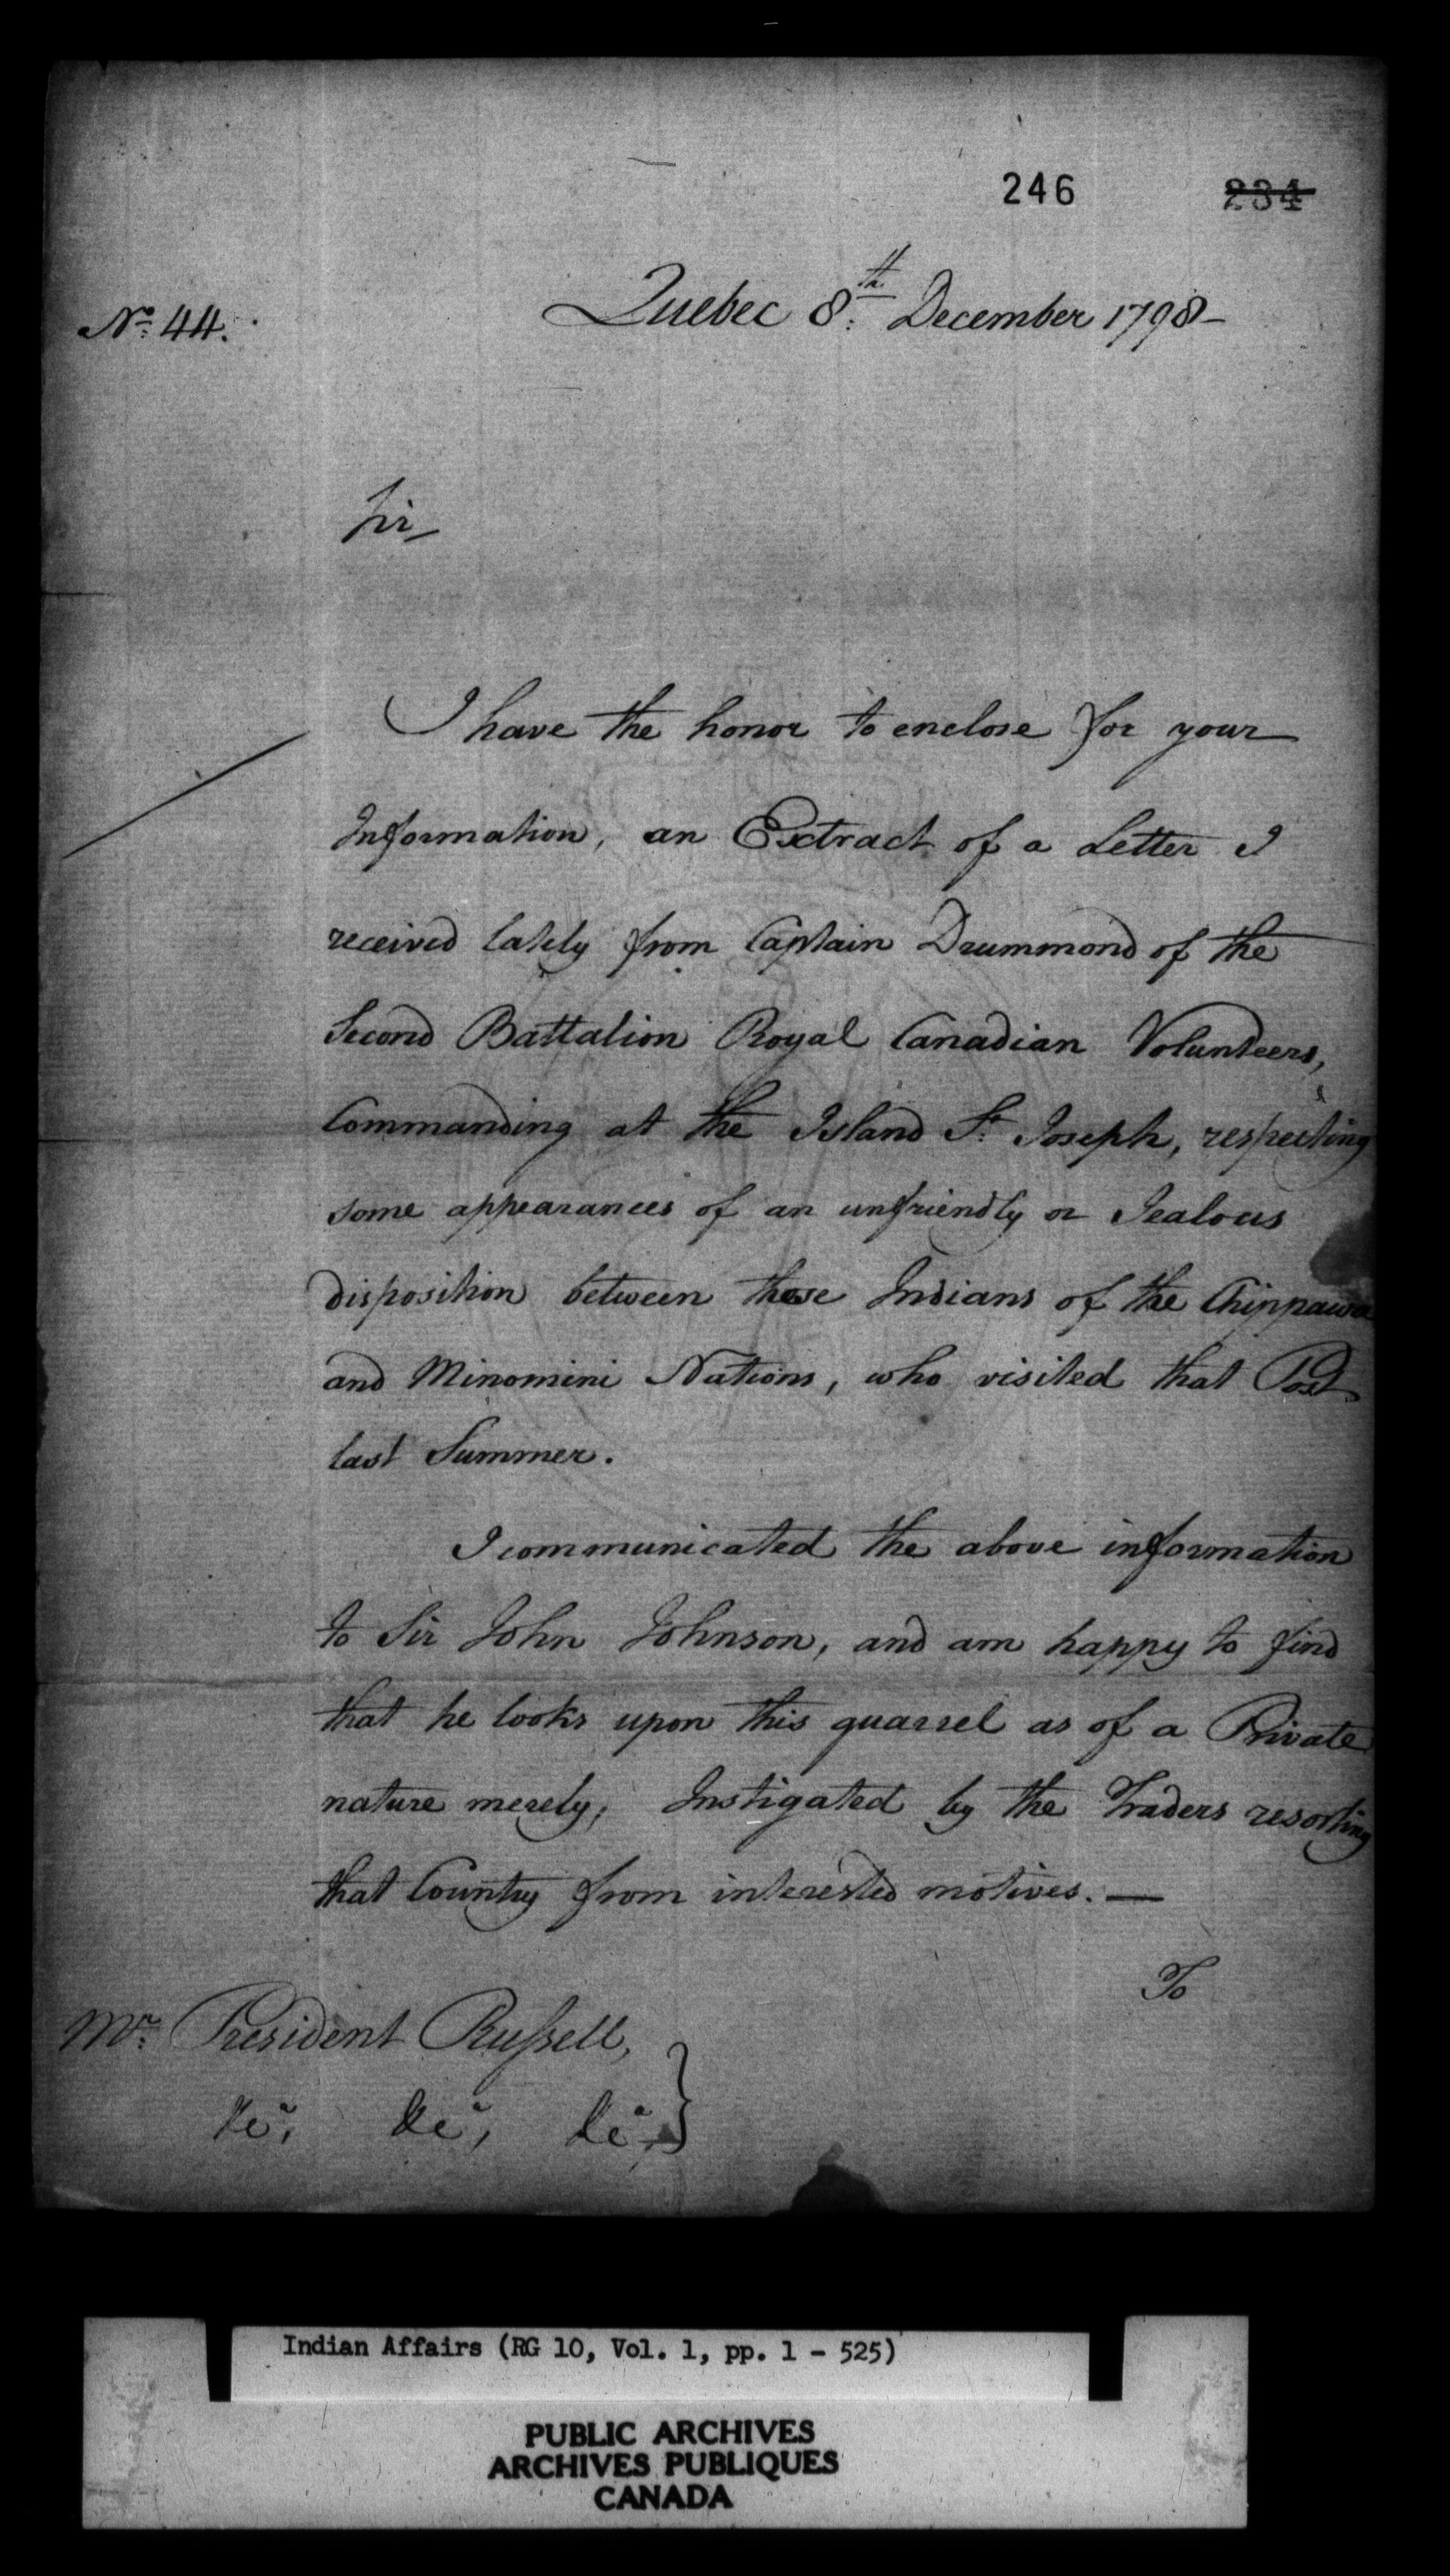 246 234
Nº 44.
Quebec 8th December 1798—
Sir
I have the honor to enclose for your
Information, an Extract of a Letter I
received lately from Captain Drummond of the
Second Battalion Royal Canadian Volunteers,
Commanding at the Island St Joseph, respecting
some appearances of an unfriendly or Jealous
disposition between those Indians of the Chippawa
and Minomini Nations, who visited that Post
last Summer.
I communicated the above information
to Sir John Johnson, and am happy to find
that he looks upon this quarrel as of a Private
nature merely, Instigated by the Traders resorting
that Country from interested motives. —
To
Mr President Russell,
&ca, &ca, &ca }
Indian Affairs (RG 10, Vol. 1, pp. 1 - 525)
PUBLIC ARCHIVES
ARCHIVES PUBLIQUES
CANADA